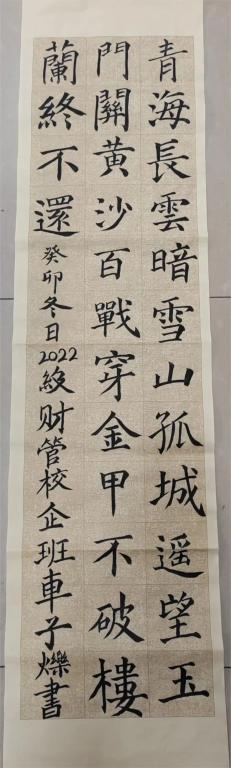 青海長雲暗雪山孤城遥望玉
門關黄沙百戰穿金甲不破樓
蘭終不還癸卯冬日2022級财管校企班車子爍書